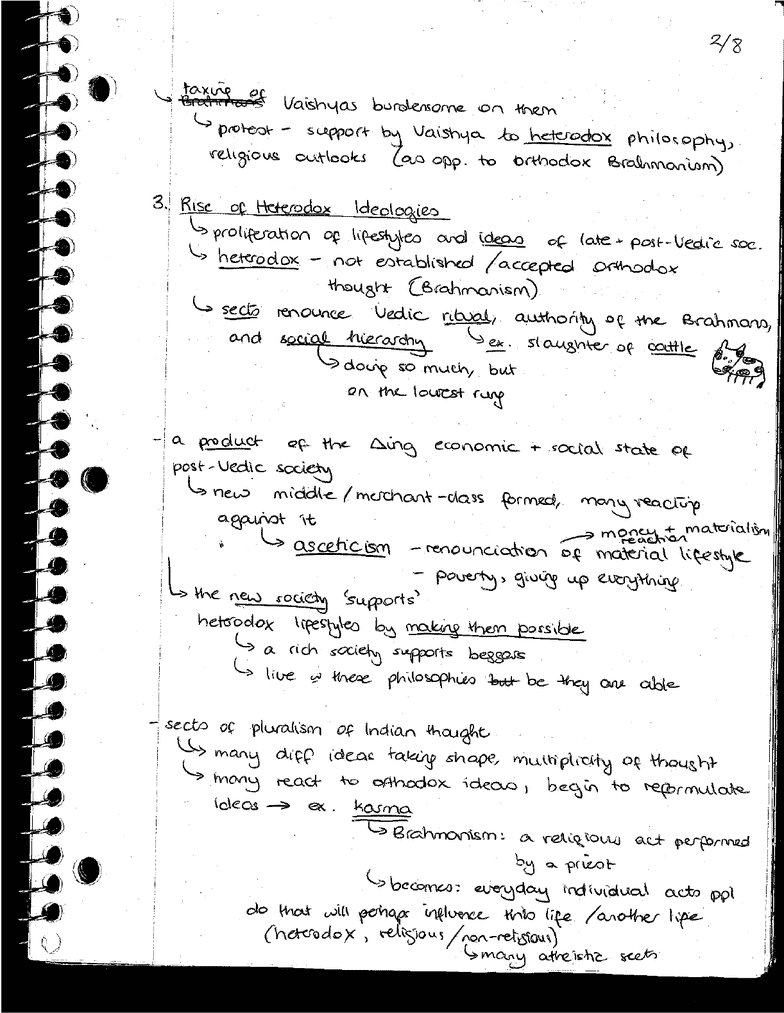 2/8
taxing of
↳ Brahmans Vaishyas burdensome on them
↳ protest - support by Vaishya to heterodox philosophy,
religious outlooks (as opp. to orthodox Brahmanism)
3. Rise of Heterodox Ideologies
↳ proliferation of lifestyles and ideas of late + post-Vedic soc.
↳ heterodox - not established / accepted orthodox
thought (Brahmanism)
↳ sects renounce Vedic ritual, authority of the Brahmans,
and social hierarchy ↳ ex. slaughter of cattle
↳ doing so much, but
on the lowest rung
- a product of the Δing economic + social state of
post-Vedic society
↳ new middle / merchant-class formed, many reacting
against it → money + materialism
reaction
↳ asceticism - renounciation of material lifestyle
- poverty, giving up everything
↳ the new society 'supports'
heterodox lifestyles by making them possible
↳ a rich society supports beggars
↳ live w these philosophies but be they are able
- sects of pluralism of Indian thought
↳ many diff ideas taking shape, multiplicity of thought
↳ many react to orthodox ideas, begin to reformulate
ideas → ex. karma
↳ Brahmanism: a religious act performed
by a priest
↳ becomes: everyday individual acts ppl
do that will perhaps influence this life / another life
(heterodox, religious / non-religious)
↳ many atheistic sects